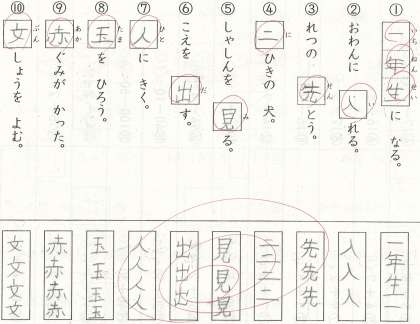 ① 一年生に なる。
いちねんせい
② おわんに 入れる。
い
③ れつの 先とう。
せん
④ 二ひきの 犬。
に
⑤ しゃしんを 見る。
み
⑥ こえを 出す。
だ
⑦ 人に きく。
ひと
⑧ 玉を ひろう。
たま
⑨ 赤ぐみが かった。
あか
⑩ 文しょうを よむ。
ぶん
一年生一
入入入
先先先
二二二
見見見
出出出
人人人人
玉玉玉玉
赤赤赤赤
文文文文